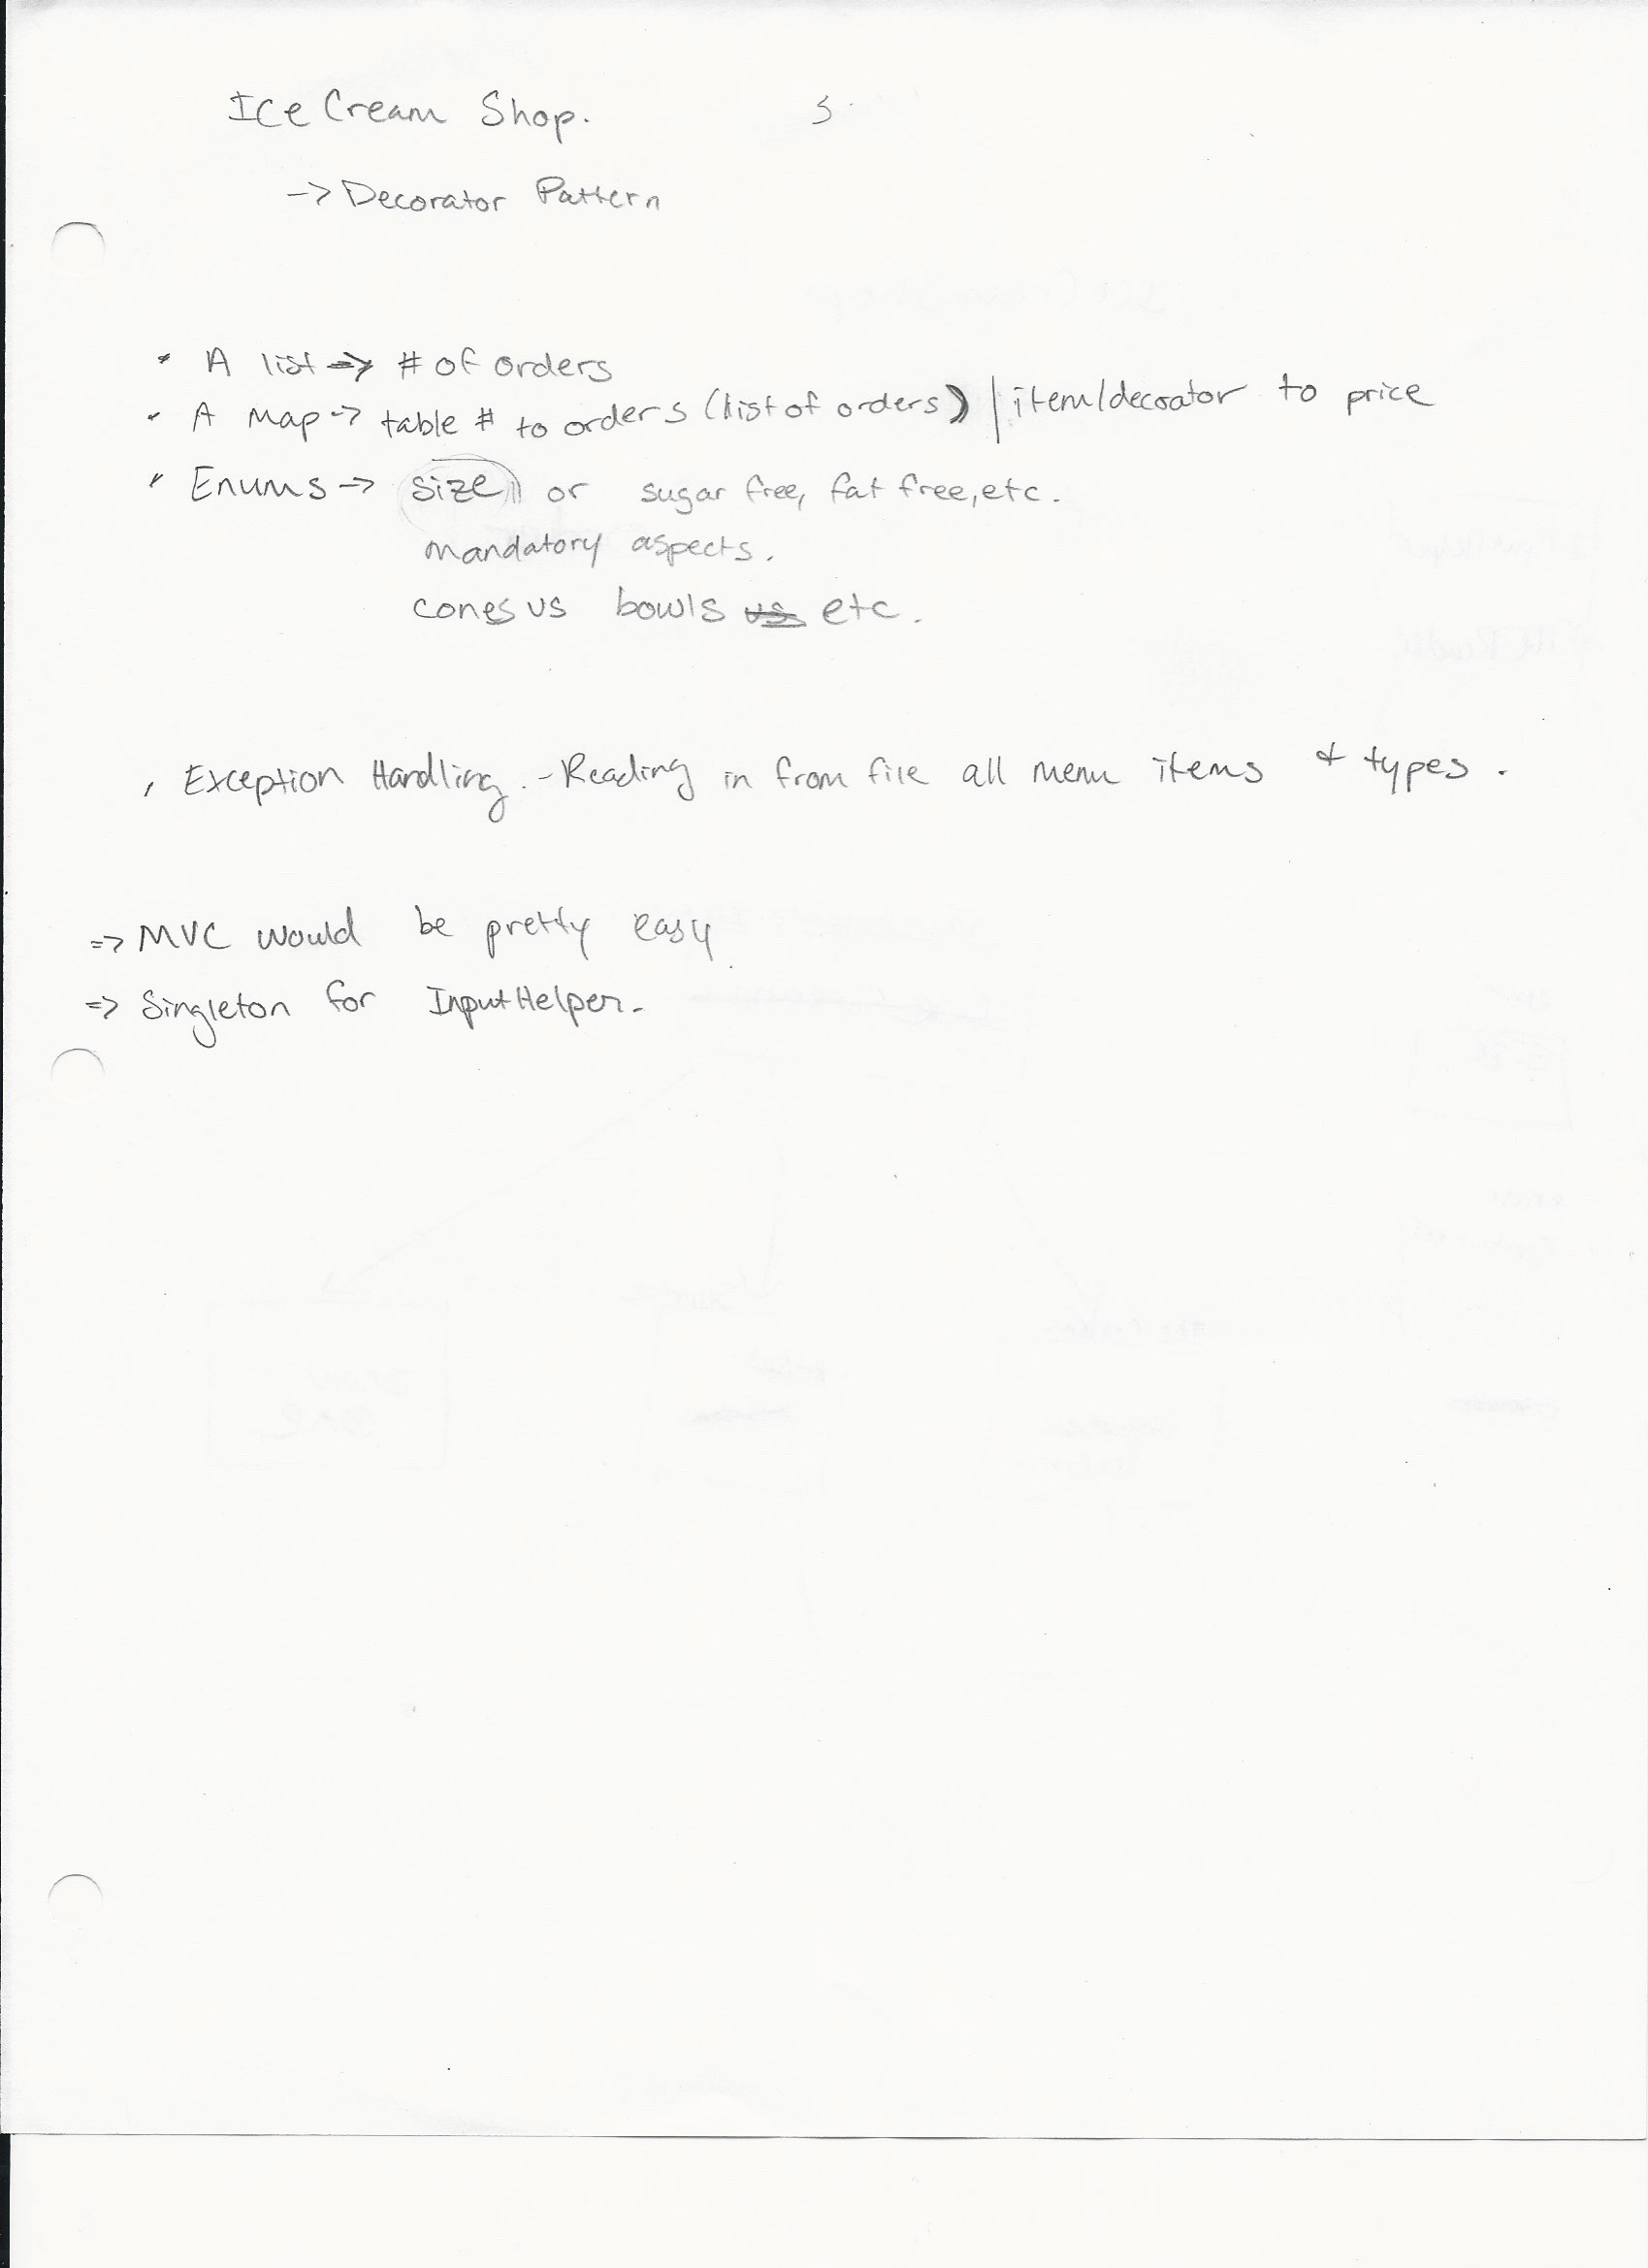 Ice Cream Shop.
-> Decorator Pattern
• A list => # of orders
• A map -> table # to orders (list of orders) | item/decorator to price
• Enums -> size or sugar free, fat free, etc.
mandatory aspects.
cones vs bowls vs etc.
• Exception Handling. - Reading in from file all menu items & types.
=> MVC would be pretty easy
=> Singleton for InputHelper.